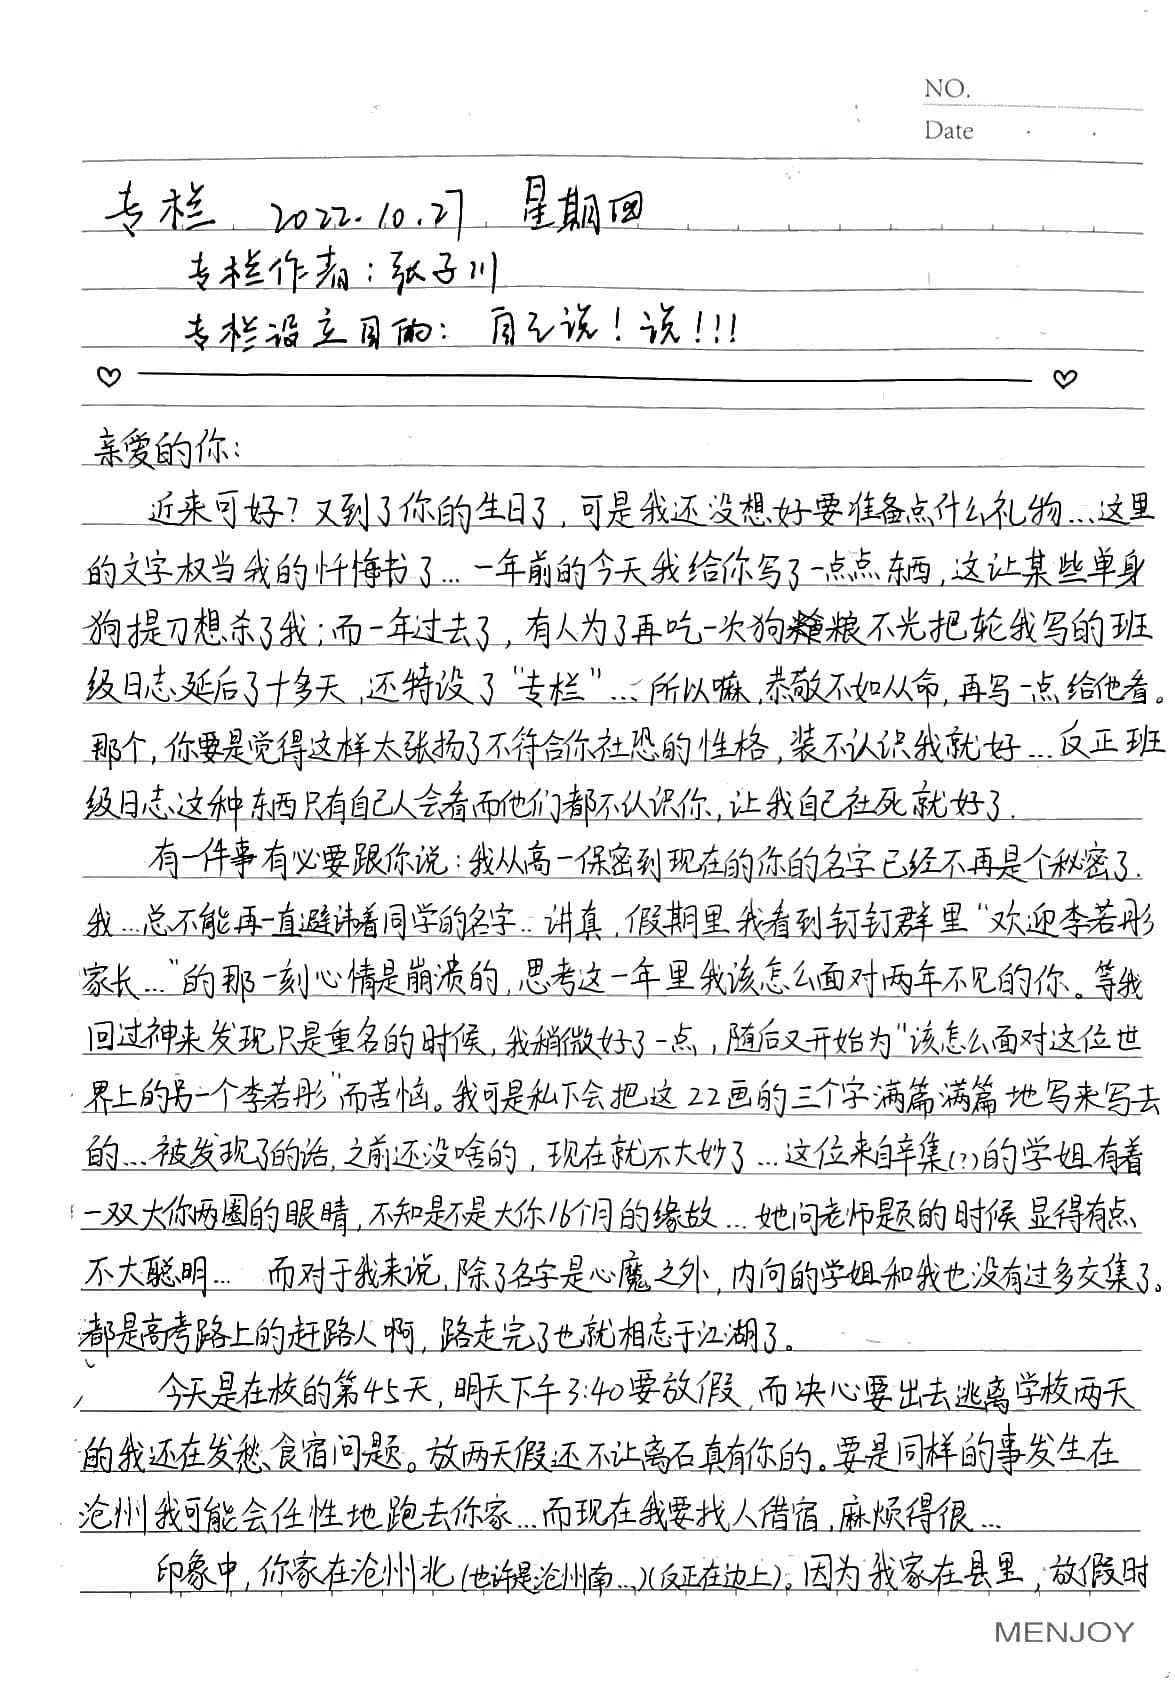 NO.
Date
专栏 2022.10.27 星期四
专栏作者：张子川
专栏设立目的： 自己说！说！！！
亲爱的你：
近来可好？又到了你的生日了，可是我还没想好要准备点什么礼物…这里
的文字权当我的忏悔书了…一年前的今天我给你写了一点点东西，这让某些单身
狗提刀想杀了我；而一年过去了，有人为了再吃一次狗粮不光把轮我写的班
级日志延后了十多天，还特设了“专栏”…所以嘛，恭敬不如从命，再写一点给他看。
那个，你要是觉得这样太张扬了不符合你社恐的性格，装不认识我就好…反正班
级日志这种东西只有自己人会看而他们都不认识你，让我自己社死就好了.
有一件事有必要跟你说：我从高一保密到现在的你的名字已经不再是个秘密了.
我…总不能再一直避讳着同学的名字..讲真，假期里我看到钉钉群里“欢迎李若彤
家长…”的那一刻心情是崩溃的，思考这一年里我该怎么面对两年不见的你。等我
回过神来发现只是重名的时候，我稍微好了一点，随后又开始为“该怎么面对这位世
界上的另一个李若彤”而苦恼。我可是私下会把这22画的三个字满篇满篇地写来写去
的…被发现了的话，之前还没啥的，现在就不大妙了…这位来自辛集(?)的学姐有着
一双大你两圈的眼睛，不知是不是大你16个月的缘故…她问老师题的时候显得有点
不大聪明… 而对于我来说，除了名字是心魔之外，内向的学姐和我也没有过多交集了。
都是高考路上的赶路人啊，路走完了也就相忘于江湖了。
今天是在校的第45天，明天下午3:40要放假，而决心要出去逃离学校两天
的我还在发愁食宿问题。放两天假还不让离石真有你的。要是同样的事发生在
沧州我可能会任性地跑去你家…而现在我要找人借宿，麻烦得很…
印象中，你家在沧州北(也许是沧州南…)(反正在边上)。因为我家在县里，放假时
MENJOY